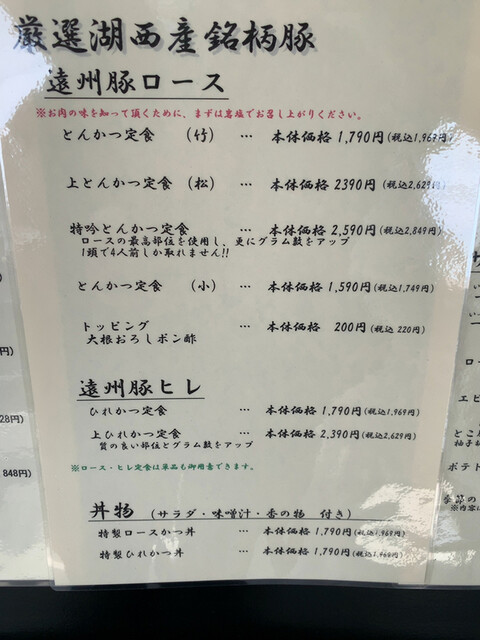 厳選湖西産銘柄豚
遠州豚ロース
※お肉の味を知って頂くために、まずは岩塩でお召し上がりください。
とんかつ定食 (竹) … 本体価格 1,790円(税込1,969円)
上とんかつ定食 (松) … 本体価格 2390円(税込2,629円)
特吟とんかつ定食 … 本体価格 2,590円(税込2,849円)
ロースの最高部位を使用し、更にグラム数をアップ
1頭で4人前しか取れません!!
とんかつ定食 (小) … 本体価格 1,590円(税込1,749円)
トッピング … 本体価格 200円(税込 220円)
大根おろしポン酢
遠州豚ヒレ
ひれかつ定食 … 本体価格 1,790円(税込1,969)
上ひれかつ定食 … 本体価格 2,390円(税込2,629円)
質の良い部位とグラム数をアップ
※ロース・ヒレ定食は単品も御用意できます。
丼物 (サラダ・味噌汁・香の物 付き)
特製ロースかつ丼 … 本体価格 1,790円(税込1,969円)
特製ひれかつ丼 … 本体価格 1,790円(税込1,969円)
円)
28円)
848円)
ロー
エビ
とこ
柚子
ポテト
季節の
※内容